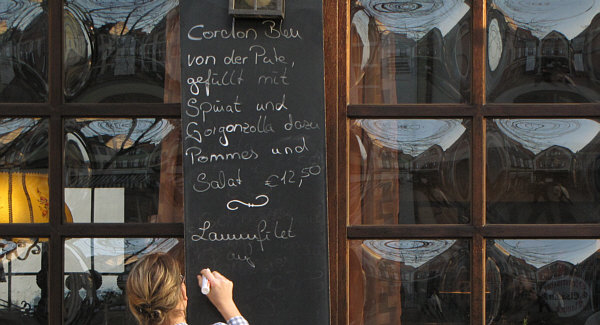 Cordon Bleu
von der Pute,
gefüllt mit
Spinat und
Gorgonzolla dazu
Pommes und
Salat €12,50
Lammfilet
auf